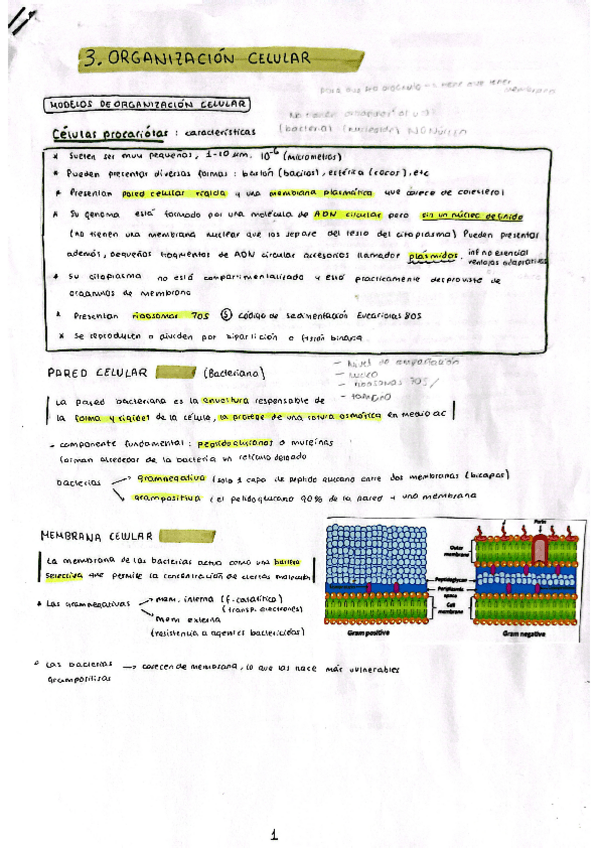 3. ORGANIZACIÓN CELULAR
MODELOS DE ORGANIZACIÓN CELULAR
Células procariotas : características
(bacteria) (nucleoide) NO Núcleo
* Suelen ser muy pequeños, 1-10 µm. 10⁻⁶ (micrometros)
* Pueden presentar diversas formas : bastón (bacilos), esférica (cocos), etc
* Presentan pared celular rígida y una membrana plasmática que carece de colesterol
* Su genoma está formado por una molécula de ADN circular pero sin un núcleo definido
(no tienen una membrana nuclear que los separe del resto del citoplasma) Pueden presentar
además, pequeños fragmentos de ADN circular accesorios llamados plásmidos. inf no esencial
ventajas adaptativas
* Su citoplasma no está compartimentalizado y está prácticamente desprovisto de
orgánulos de membrana
* Presentan ribosomas 70S (S) código de sedimentación Eucariotas 80S
* Se reproducen o dividen por bipartición o fisión binaria
PARED CELULAR (Bacteriana)
- nucleo
- ribosomas 70S/
- tamaño
La pared bacteriana es la envoltura responsable de
la forma y rigidez de la célula, la protege de una rotura osmótica en medio ac
- componente fundamental : peptidoglucanos o mureínas
forman alrededor de la bacteria un retículo delgado
bacterias → gramnegativa (solo 1 capa de peptido glucano entre dos membranas (bicapas)
→ grampositiva ( el petidoglucano 90% de la pared + una membrana
MEMBRANA CELULAR
La membrana de las bacterias actúa como una barrera
selectiva que permite la concentración de ciertas molécula
* Las gramnegativas → mem. interna (f-catalítica)
(transp. electrones)
→ mem externa
(resistencia a agentes bactericidas)
* Las bacterias → carecen de membrana, lo que las hace más vulnerables
grampositivas
Porin
Outer membrane
Peptidoglycan
Periplasmic space
Cell membrane
Gram positive
Gram negative
1